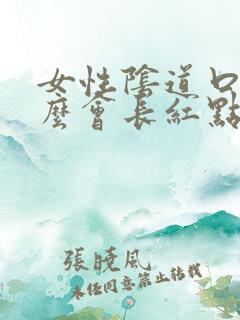 女性陰道口
麼會長紅點
張曉風
未經同意禁止轉載